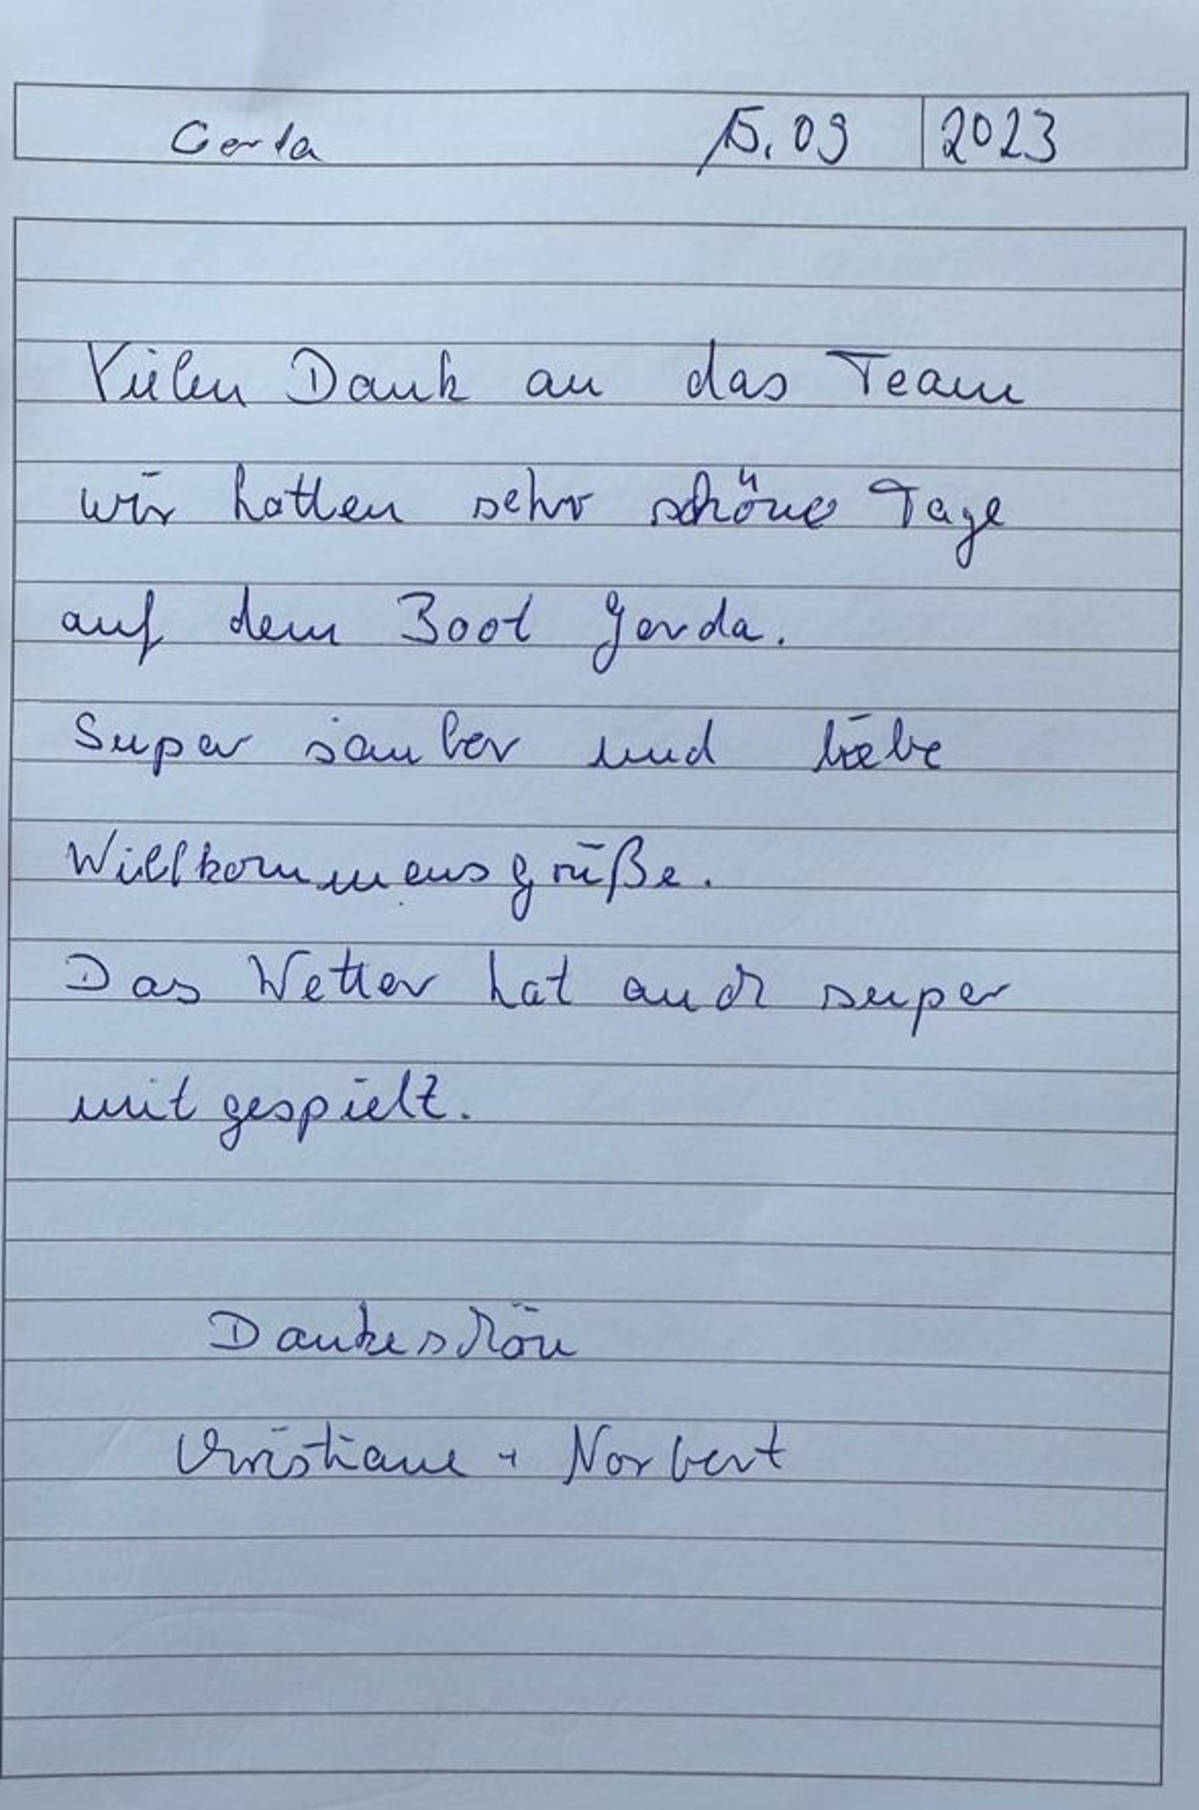 Gerda 15.09 2023
Vielen Dank an das Team
wir hatten sehr schöne Tage
auf dem Boot Gerda.
Super sauber und liebe
Willkommensgrüße.
Das Wetter hat auch super
mitgespielt.
Dankeschön
Christiane + Norbert